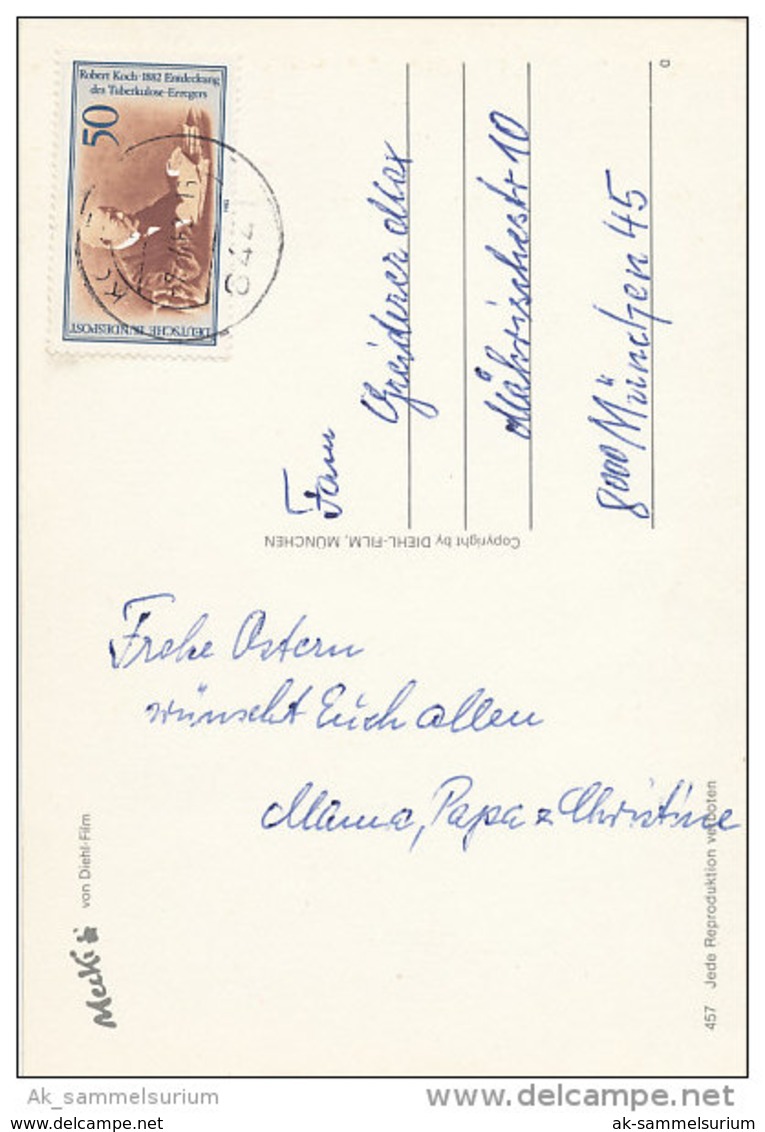 Robert Koch · 1882 Entdeckung
des Tuberkulose-Erregers
50
DEUTSCHE BUNDESPOST
8441
Fam
Greiderer Max
Mährischestr 10
8000 München 45
Copyright by DIEHL-FILM, MÜNCHEN
Frohe Ostern
wünscht Euch allen
Mama, Papa + Christine
Mecki
von Diehl-Film
457 Jede Reproduktion verboten
Ak_sammelsurium
www.delcampe.net
ak-sammelsurium
www.delcampe.net
ak-sammelsurium